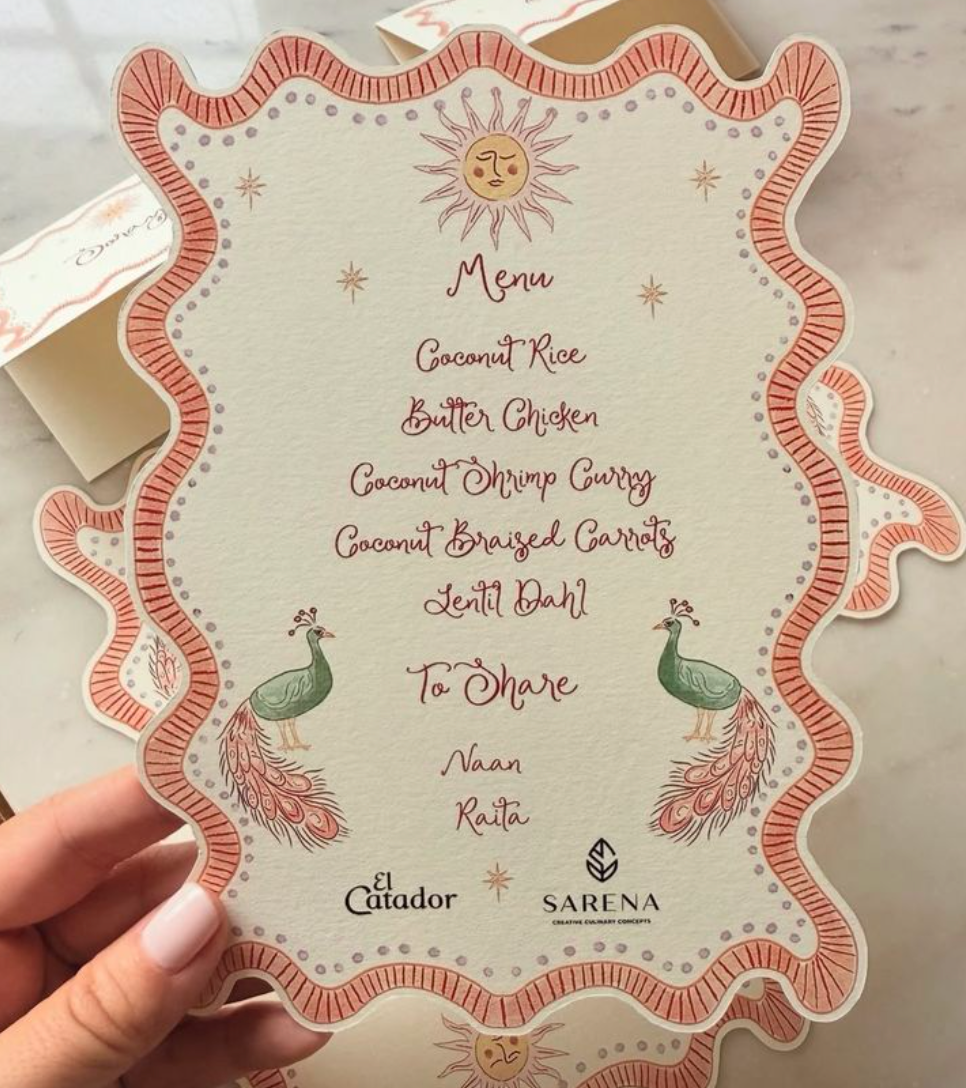 Menu
Coconut Rice
Butter Chicken
Coconut Shrimp Curry
Coconut Braised Carrots
Lentil Dahl
To Share
Naan
Raita
El Catador
SARENA
CREATIVE CULINARY CONCEPTS